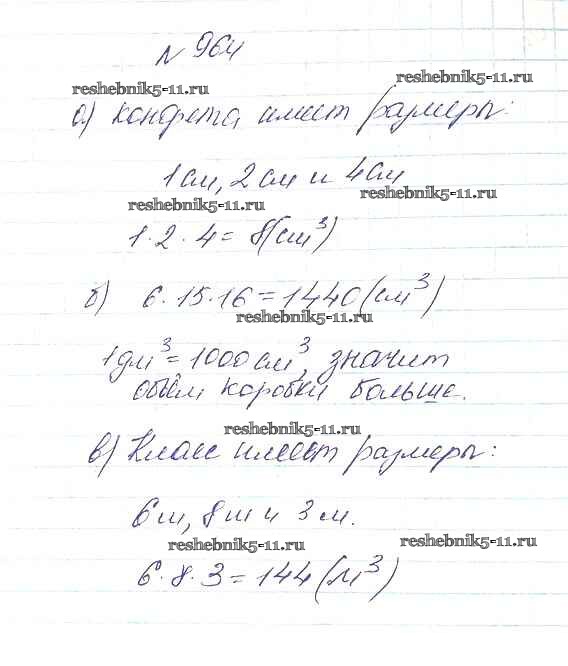 N 964
reshebnik5-11.ru
reshebnik5-11.ru
а) Конфета имеет размеры:
1 см, 2 см и 4 см
reshebnik5-11.ru
reshebnik5-11.ru
1·2·4 = 8 (см³)
б) 6·15·16 = 1440 (см³)
reshebnik5-11.ru
1 дм³ = 1000 см³, значит
объём коробки больше.
reshebnik5-11.ru
в) Класс имеет размеры:
6 м, 8 м и 3 м.
reshebnik5-11.ru
reshebnik5-11.ru
6·8·3 = 144 (м³)